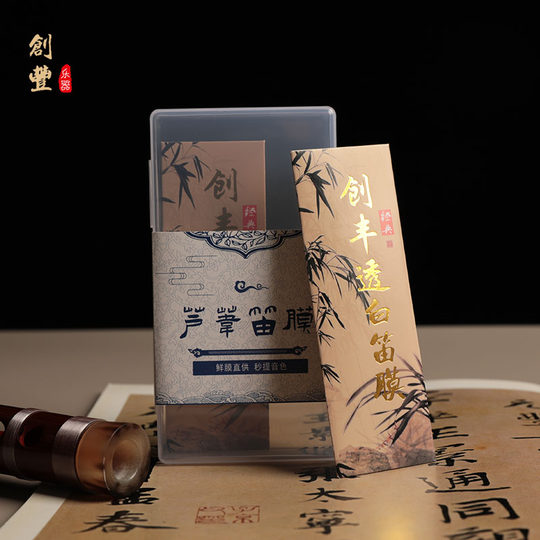 創豐
乐器
创丰
芦苇笛膜
鲜膜直供 秒提音色
创丰透白笛膜
经典
春
太寧
通
同